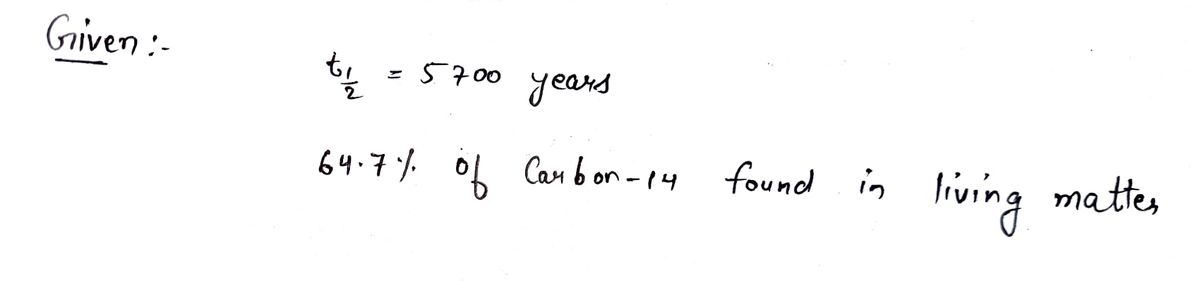 Given :-
t1/2 = 5700 years
64.7% of Carbon-14 found in living matter